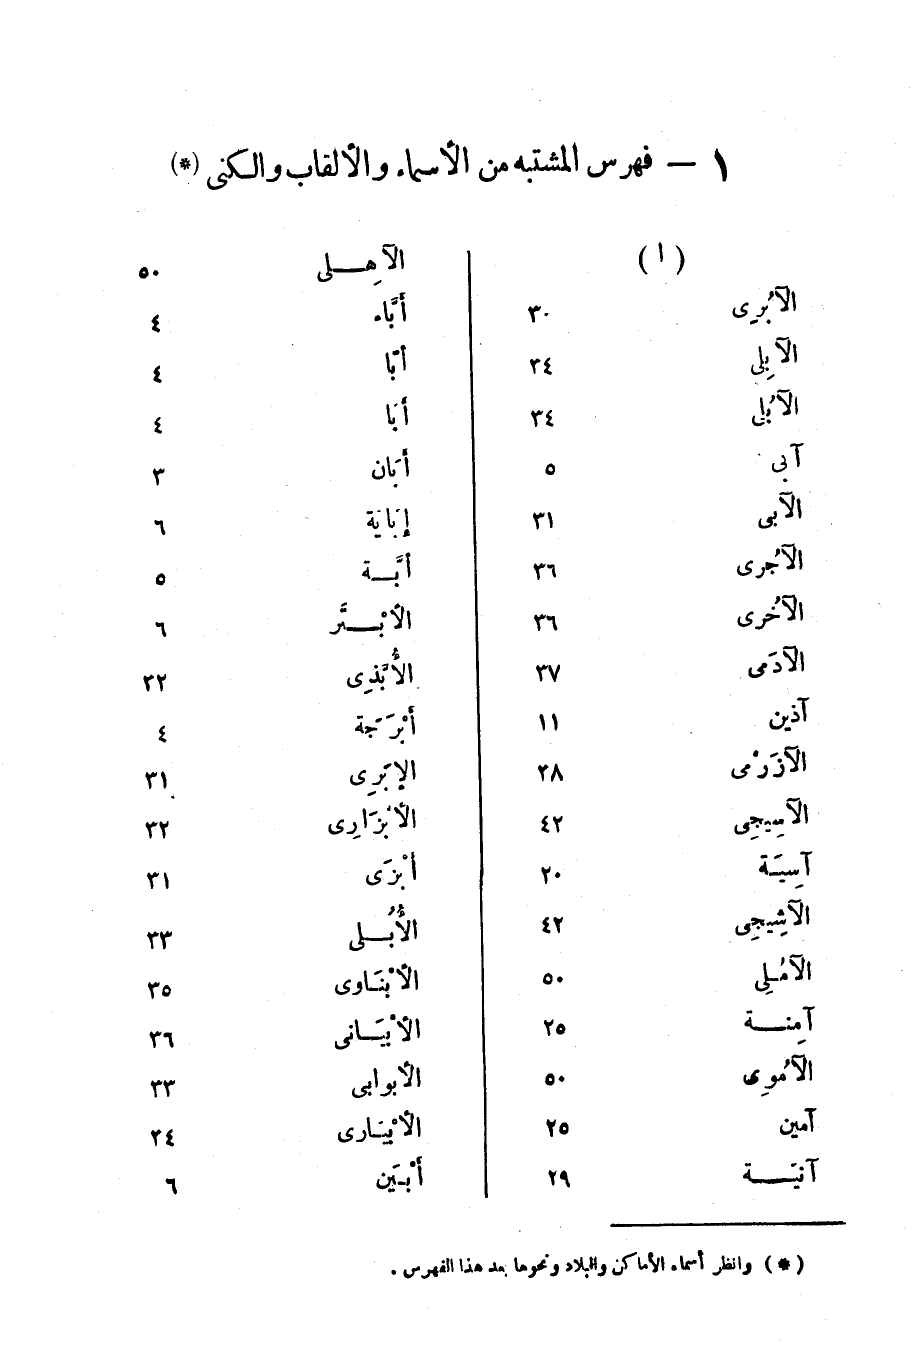 ١ — فهرس المشتبه من الأسماء والألقاب والكنى (*)
( ١ )
الآبُرِى ٣٠
الآبِلى ٣٤
الآبُلى ٣٤
آبى ٥
الآبى ٣١
الآجُرى ٣٦
الآخُرى ٣٦
الآدَمى ٣٧
آذين ١١
الآزَرْمى ٣٨
الآسِيجِى ٤٢
آسِيَة ٢٠
الآشِيجِى ٤٢
الآمُلِى ٥٠
آمِنة ٢٥
الآمُوِى ٥٠
آمين ٢٥
آنيَة ٢٩
الآهِلى ٥٠
أَبَّاء ٤
أبّا ٤
أَبَا ٤
أَبَان ٣
إِبَايَة ٦
أَبَّة ٥
الأبْتَّر ٦
الأُبَّذِى ٢٢
أَبْرَجَة ٤
الإبَرِى ٣١
الأبْزَارِى ٣٢
أبْزَى ٣١
الأُبُلى ٣٣
الأبْنَاوى ٣٥
الأبْيَانى ٣٦
الأبوابى ٣٣
الأبْيَارى ٢٤
أَبْيَن ٦
(*) وانظر أسماء الأماكن والبلاد ونحوها بعد هذا الفهرس .